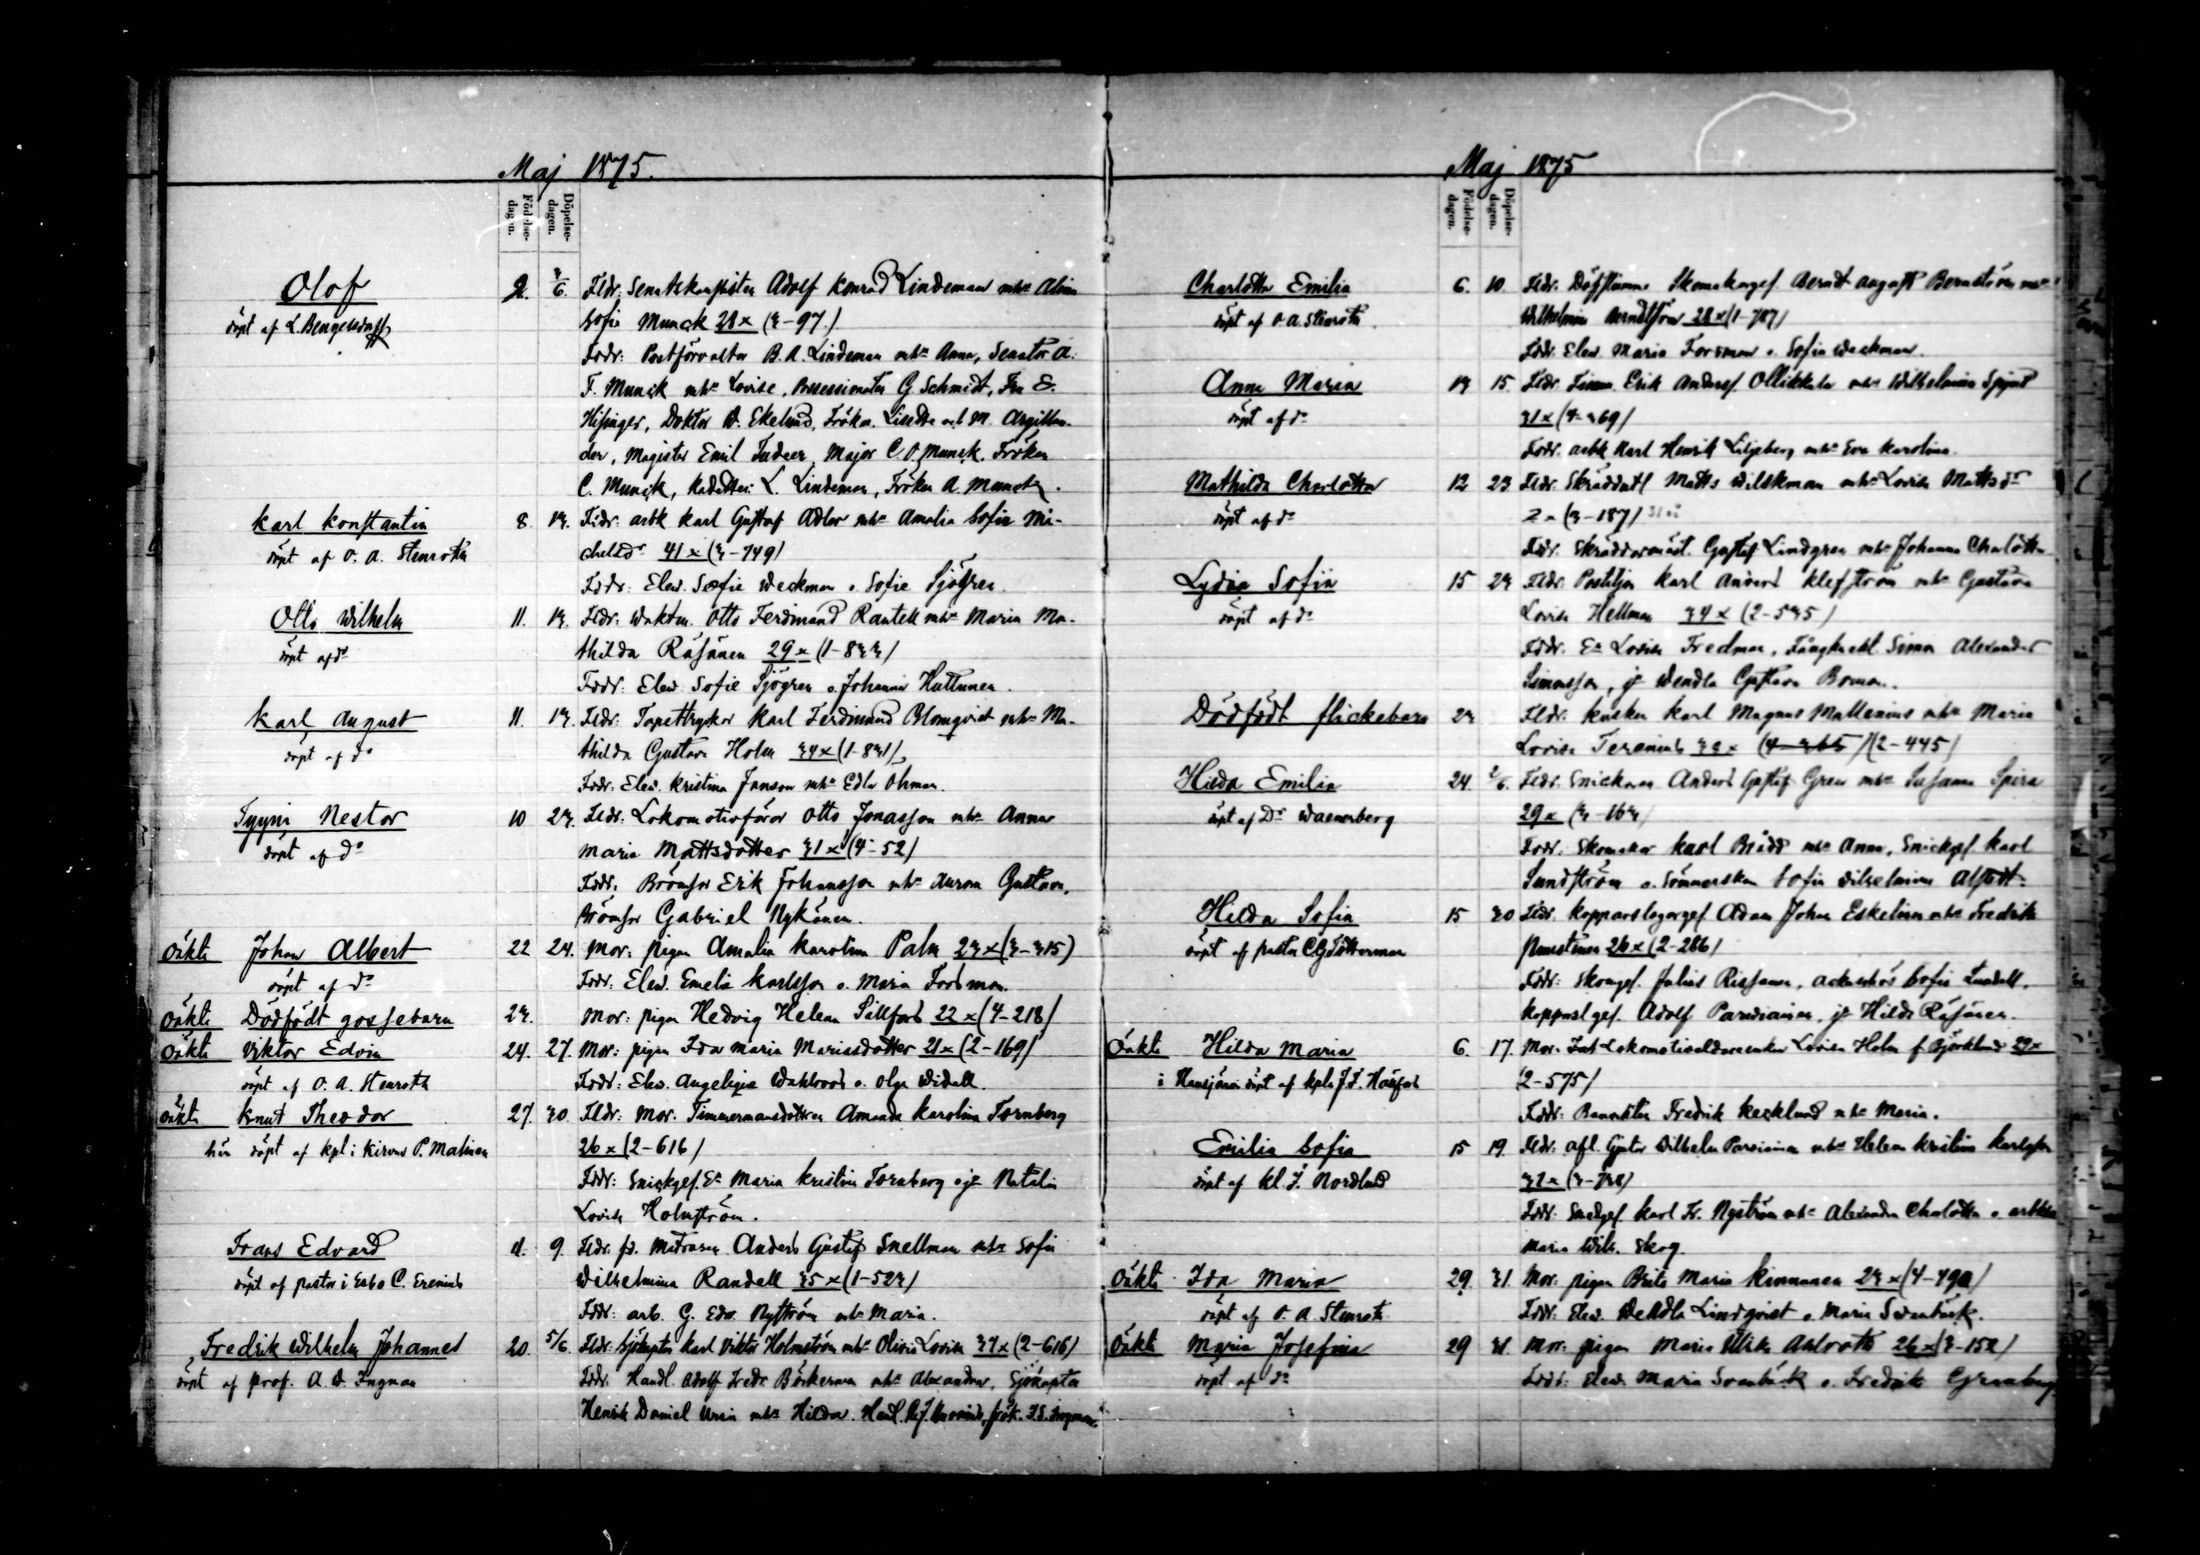 Maj 1875.
Födelse-
dagen.
Döpelse-
dagen.
Olof
döpt af L. Bengelsdorff
2. 3/6. Fldr. Senatskopisten Adolf Konrad Lindeman o hs Alma
Sofie Munck 28 x (3-97)
Fddr: Postförvalter B. A. Lindeman o hs Anna, Senator A.
F. Munck o hs Lovise, G Schmidt, Fru E.
Hisinger, Doktor W. Ekelund, Frökn. Lisette o M. Argillan-
der, Magister Emil Major C. O. Munck, Fröken
C. Munck, Kadetten L. Lindeman, Fröken A. Munck.
Karl Konstantin
döpt af O. A. Stenroth
8. 13. Fldr: arbk Karl Gustaf Adler o hs Amalia Sofia Mi-
chelsdr 41 x (3-749)
Fddr: Elev. Sofie Weckman o. Sofie Sjögren.
Otto Wilhelm
döpt af do
11. 13. Fldr: Waktm. Otto Ferdinand Rantell o hs Maria Ma-
thilda Räsänen 29 x (1-833)
Fddr: Elev. Sofie Sjögren o. Johanna Huttunen.
Karl August
döpt af do
11. 13. Fldr: Tapettryckar Karl Ferdinand Blomqvist o hs Ma-
thilda Gustava Holm 34 x (1-831)
Fddr: Elev. Kristina Janson o hs Edla Öhman.
Tyyni Nestor
döpt af do
10 23. Fldr. Lokomotivförar Otto Jonasson o hs Anna
Maria Mattsdotter 31 x (4-52)
Fddr. Bromsör Erik Johansson o hs Aurora Gustava,
Bromsör Gabriel Nykänen.
Oäkta Johan Albert
döpt af do
22 24. Mor: pigan Amalia Karolina Palm 23 x (3-315)
Fddr: Elev. Emelie Karlsson o. Maria Forsman.
Oäkta Dödfödt gossebarn
23. Mor: pigan Hedvig Helena Sillfors 22 x (4-218)
Oäkta Viktor Edvin
döpt af O. A. Stenroth
24. 27. Mor: pigan Ida Maria Mariasdotter 21 x (2-169)
Fddr: Elev. Angeliqie Wahlroos o. Olga Widell.
Oäkta Knut Theodor
här döpt af kpl i Kirvus P. Malinen
27. 30. Fldr: Mor. Timmermansdottren Amanda Karolina Tornberg
26 x (2-616)
Fddr: Snickgef. Ea Maria Kristina Tornberg o ja Natalia
Lovisa Holmström.
Frans Edvard
döpt af pastor i Esbo C. Erenius
4. 9. Fldr. fd. Matrosen Anders Gustaf Snellman o hs Sofia
Wilhelmina Randell 35 x (1-523)
Fddr: arb. G. Edv. Nyström o hs Maria.
Fredrik Wilhelm Johannes
döpt af prof. A. W. Ingman
20. 5/6. Fldr: Sjökapten Karl Viktor Holmström o hs Olivia Lovisa 37 x (2-616)
Fddr. Handl. Adolf Fredr. Böckerman o hs Alexandra, Sjökapten
Henrik Daniel Ursin o hs Hilda.
Maj 1875
Födelse-
dagen.
Döpelse-
dagen.
Charlotta Emilia
döpt af O. A. Stenroth
6. 10. Fldr. Döfstumma Skomakargef. Berndt August Berndtsson o hs
Wilhelmina Arndtsson 28 x (1-787)
Fddr. Elev. Maria Forsman o. Sofia Weckman.
Anna Maria
döpt af do
13 15. Fldr. Timm. Erik Andersf. Ollikkala o hs Wilhelmina
31 x (4-369)
Fddr. arbk Karl Henrik Liljeberg o hs Eva Karolina.
Mathilda Charlotta
döpt af do
12 23 Fldr. Matts Wilskman o hs Lovisa Mattsdr
2 x (3-187)
Fddr. Skräddarmäst. Gustaf Lindgren o hs Johanna Charlotta
Lydia Sofia
döpt af do
15 23 Fldr. Postiljon Karl Anders Klefström o hs Gustava
Lovisa Hellman 34 x (2-535)
Fddr. Ea Lovisa Fredman, Simon Alexander
Simonsson, ja Wendla Gustava Boman.
Dödfödt flickebarn
23 Fldr. kusken Karl Magnus Mallenius o hs Maria
Lovisa 32 x (4-365) (2-445)
Hilda Emilia
döpt af Dr Waenerberg
24. 2/6. Fldr. Snickaren Anders Gustaf Gren o hs Susanna Spira
29 x (3-163)
Fddr. Skomakar Karl Brädd o hs Anna, Snickgef. Karl
Sundström o. Sömmerskan Sofia Wilhelmina
Hilda Sofia
döpt af pastor C. G. Tötterman
15 30 Fldr. Kopparslagargef. Adam Johan Eskelinen o hs Fredrika
26 x (2-286)
Fddr: Skomgef. Julius Sofia Lindell,
Kopparslgef. Adolf Parviainen, ja Hilda Räsänen.
Oäkta Hilda Maria
i Hausjärvi döpt af kpln J. F.
6. 17. Mor. Lovisa Holm f. Björklund 29 x
(2-575)
Fddr: Banvakten Fredrik Kecklund o hs Maria.
Emilia Sofia
döpt af kl. J. Nordlund
15 19. Fldr. Wilhelm Parviainen o hs Helena Kristina Karlsson
32 x (3-738)
Fddr: Smedgef. Karl Fr. Nyström o hs Alexandra Charlotta o.
Maria Wilh. Skog.
Oäkta Ida Maria
döpt af O. A. Stenroth
29. 31. Mor: pigan Brita Maria Kinnunen 23 x (4-490)
Fddr: Elev. Wendla Lindqvist o. Maria Svanbäck.
Oäkta Maria Josefina
döpt af do
29 31. Mor: pigan Maria Ulrika Ahlroth 26 x (3-152)
Fddr: Elev. Maria Svanbäck o. Fredrika Grönberg